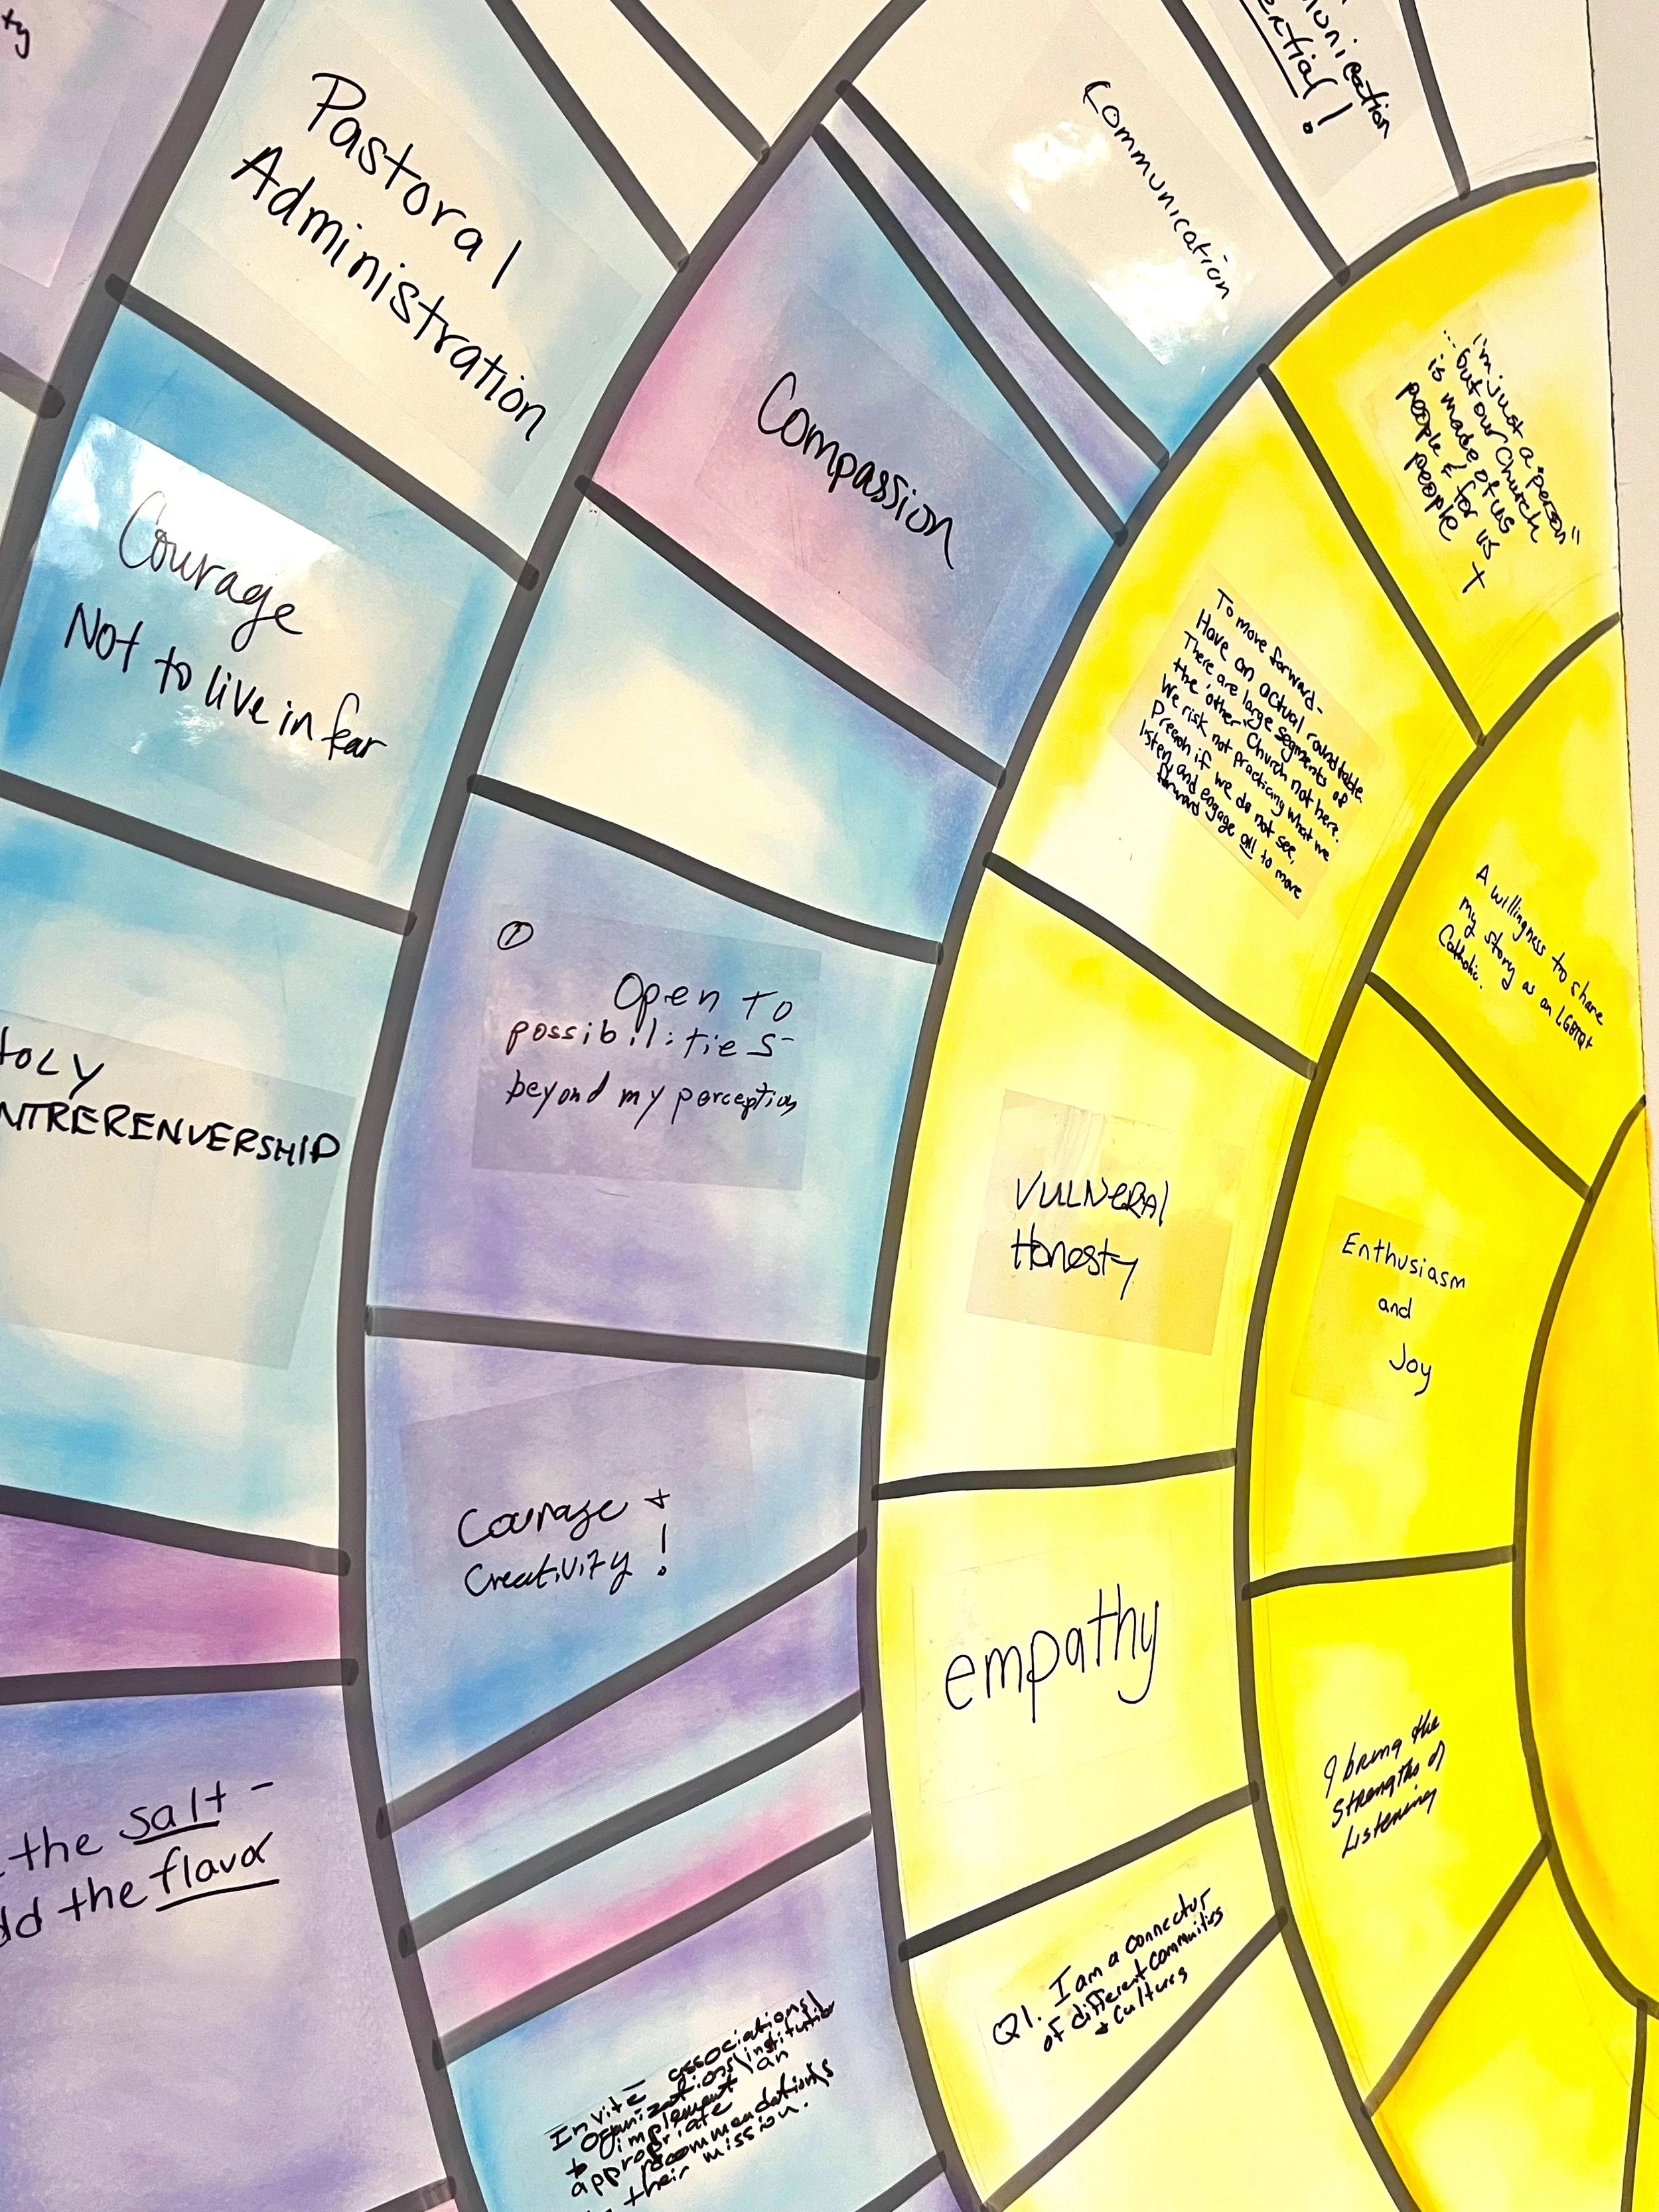 ty
Pastoral
Administration
Communication
munication
ential!
Courage
Not to live in fear
Compassion
I'm just a "person"
... but our Church
is made of us
people & for us
people +
To move forward-
Have an actual roundtable.
There are large segments of
the 'other' Church not here.
We risk not practicing what we
preach if we do not see,
listen, and engage all to move
forward
A willingness to share
my story as an LGBTQ+
Catholic.
①
Open To
possibilities-
beyond my perception
HOLY
NTRERENVERSHIP
VULNERAl
Honesty
Enthusiasm
and
Joy
Courage +
Creativity!
empathy
I bring the
strengths of
Listening
the salt -
dd the flavor
Q1. I am a connector
of different communities
+ cultures
Invite associations/
organizations/institution
to implement an
appropriate
recommendations
their mission.